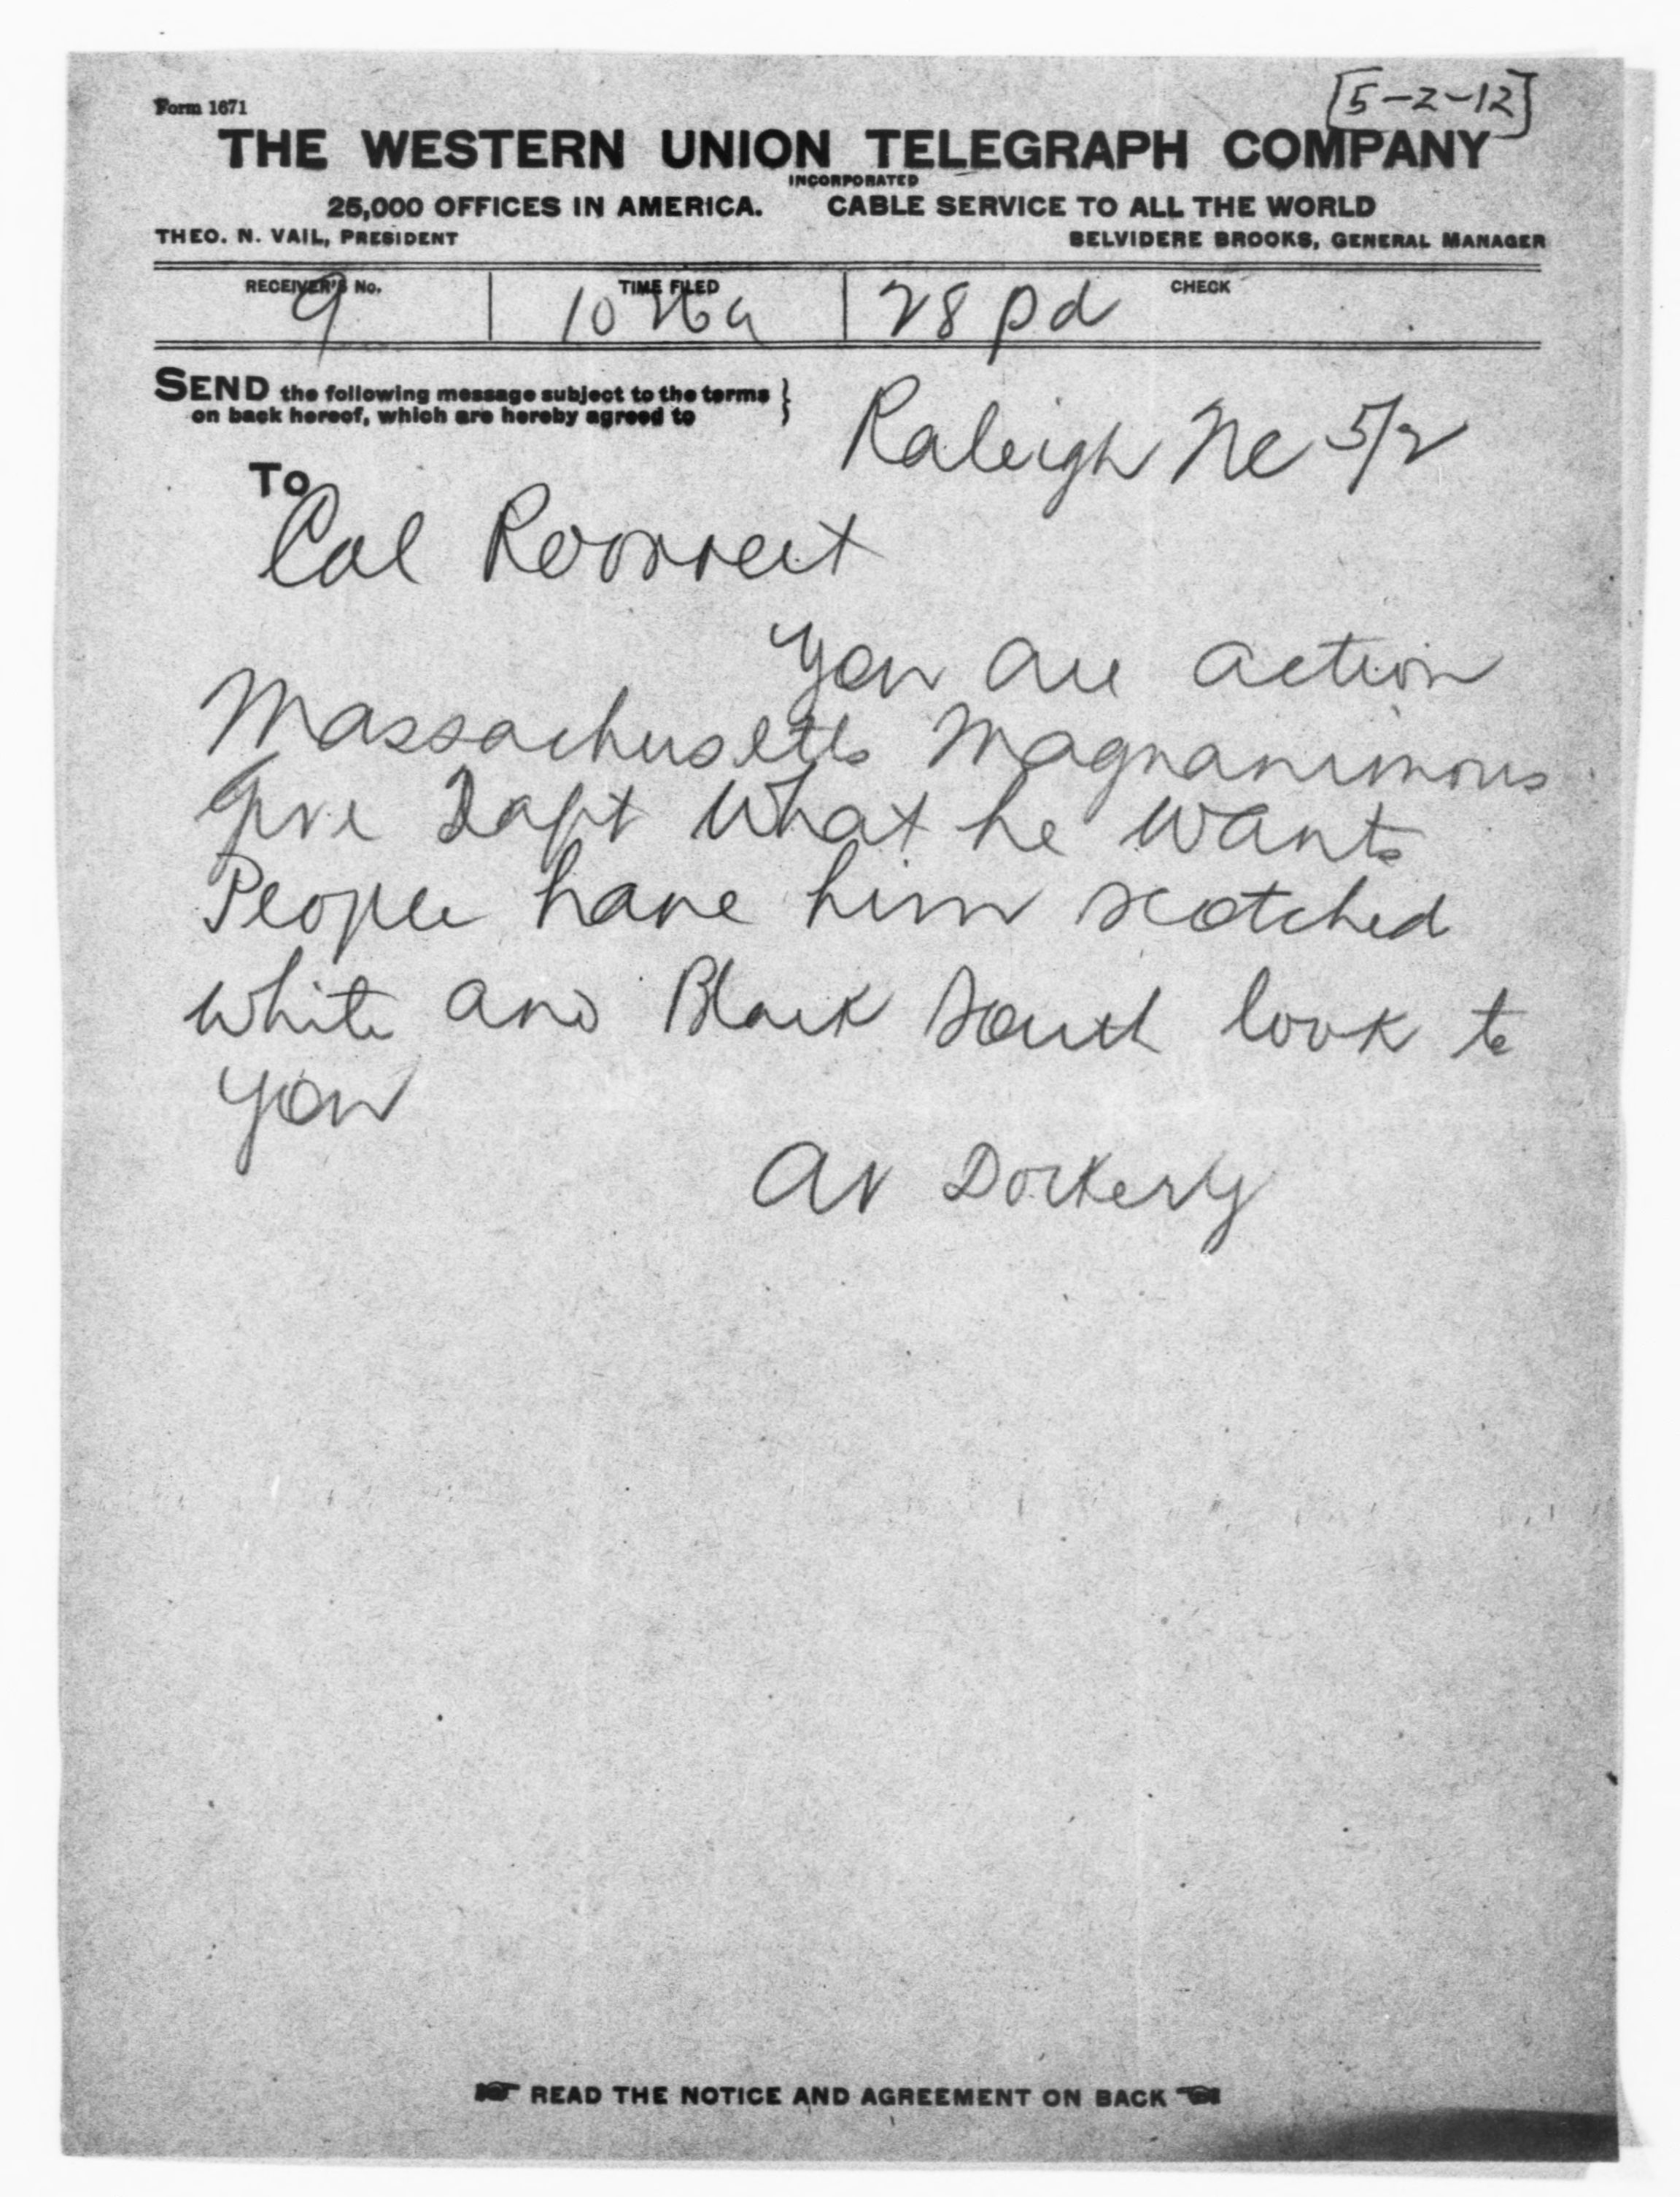 [5-2-12]
Form 1671
THE WESTERN UNION TELEGRAPH COMPANY
INCORPORATED
25,000 OFFICES IN AMERICA. CABLE SERVICE TO ALL THE WORLD
THEO. N. VAIL, PRESIDENT BELVIDERE BROOKS, GENERAL MANAGER
RECEIVER'S No. TIME FILED CHECK
9 10 26a 28 pd
SEND the following message subject to the terms
on back hereof, which are hereby agreed to
Raleigh NC 5/2
To
Col Roosevelt
You are action
Massachusetts Magnanimous
Give Taft What he Wants
People have him scotched
White and Black South look to
you
AV Dockery
READ THE NOTICE AND AGREEMENT ON BACK